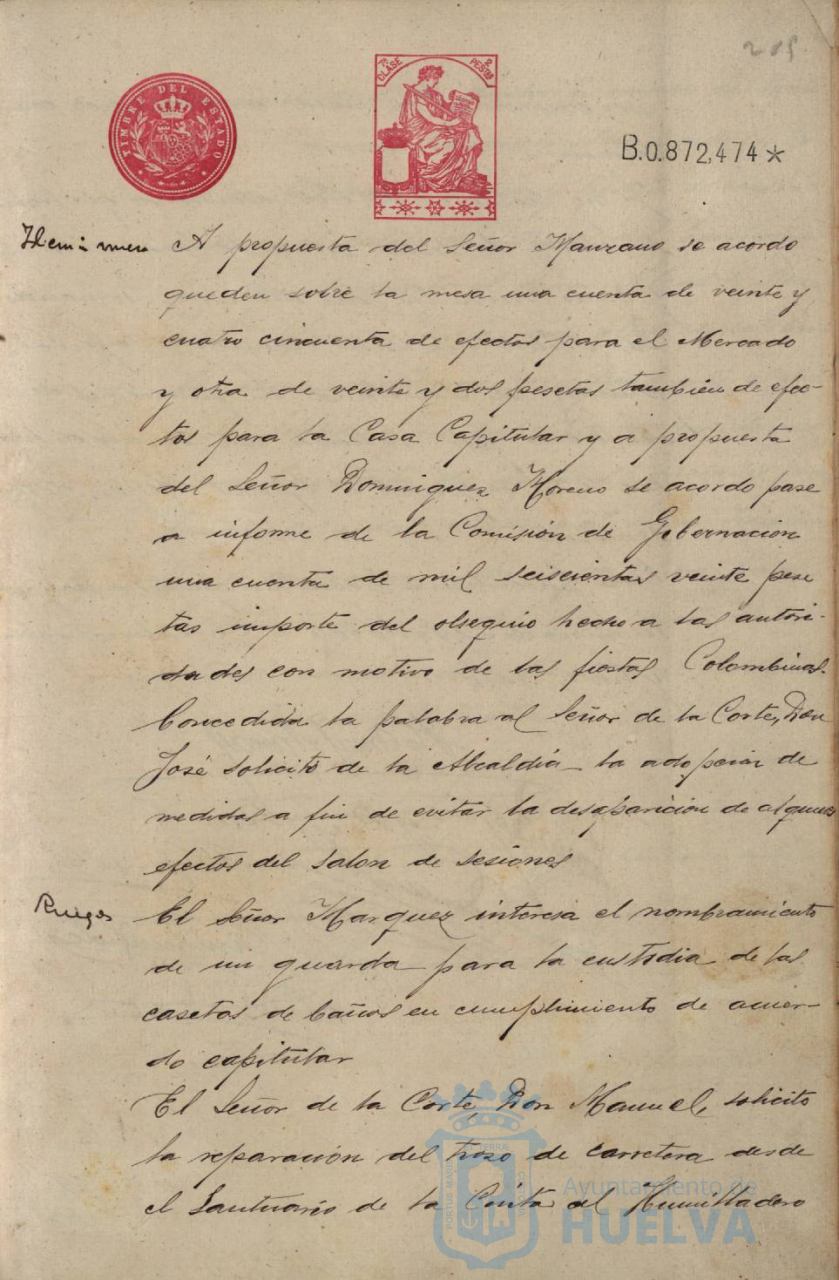 205
TIMBRE DEL ESTADO
7ª CLASE
2 PESETAS
B.0.872,474*
A propuesta del Señor Manzano se acordo
queden sobre la mesa una cuenta de veinte y
cuatro cincuenta de efectos para el Mercado
y otra de veinte y dos pesetas tambien de efec-
tos para la Casa Capitular y a propuesta
del Señor Dominguez Moreno se acordo pase
a informe de la Comisión de Gobernacion
una cuenta de mil seiscientas veinte pese
tas importe del obsequio hecho a las autori-
dades con motivo de las fiestas Colombinas.
Concedida la palabra al Señor de la Corte, Don
José solicitó de la Alcaldía la adopcion de
medidas a fin de evitar la desaparicion de algunos
efectos del salon de sesiones
Ruegos
El Señor Marquez interesa el nombramiento
de un guarda para la custodia de las
casetas de baños en cumplimiento de acuer-
do capitular
El Señor de la Corte, Don Manuel, solicito
la reparación del trozo de carretera desde
el Santuario de la Cinta al Humilladero
Ayuntamiento de
HUELVA